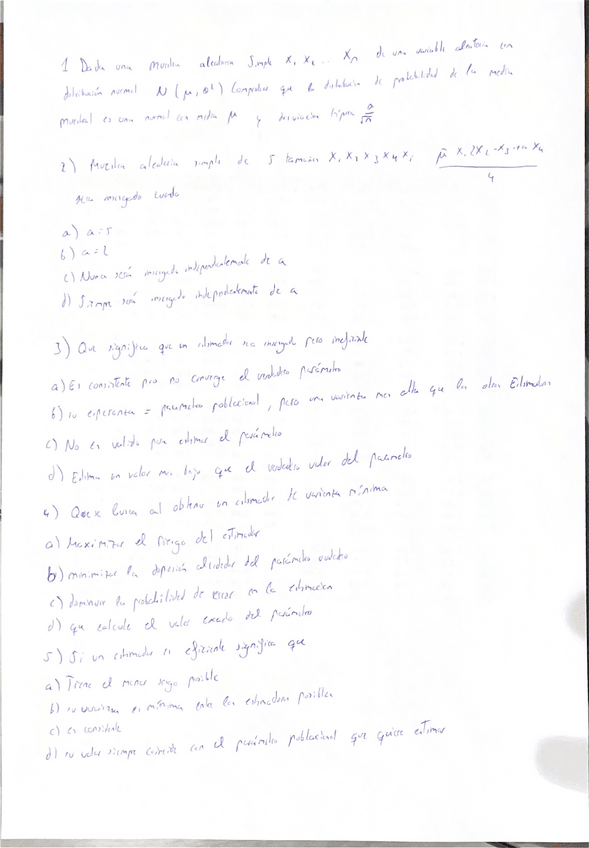 1 Dada una muestra aleatoria simple X₁ X₂ ... Xn de una variable aleatoria con
distribución normal N(μ, σ²) Comprobar que la distribución de probabilidad de la media
muestral es una normal con media μ y desviación típica σ/√n
2) Muestra aleatoria simple de 5 tamaño X₁ X₂ X₃ X₄ X₅ μ̂ X₁ 2X₂ - X₃ X₄
4
sera insesgado cuando
a) a=5
b) a=2
c) Nunca será insesgado independientemente de a
d) Siempre será insesgado independientemente de a
3) Que significa que un estimador sea insesgado pero ineficiente
a) Es consistente pero no converge el verdadero parámetro
b) su esperanza = parametro poblacional, pero una varianza mas alta que los otros Estimadores
c) No es valido para estimar el parámetro
d) Estima un valor mas bajo que el verdadero valor del parametro
4) Que se busca al obtener un estimador de varianza mínima
a) Maximizar el riesgo del estimador
b) minimizar la dispersión alrededor del parámetro verdadero
c) disminuir la probabilidad de error en la estimacion
d) que calcule el valor exacto del parámetro
5) Si un estimador es eficiente significa que
a) Tiene el menor sesgo posible
b) su varianza es mínima entre los estimadores posibles
c) es consistente
d) su valor siempre coincide con el parámetro poblacional que quiere estimar